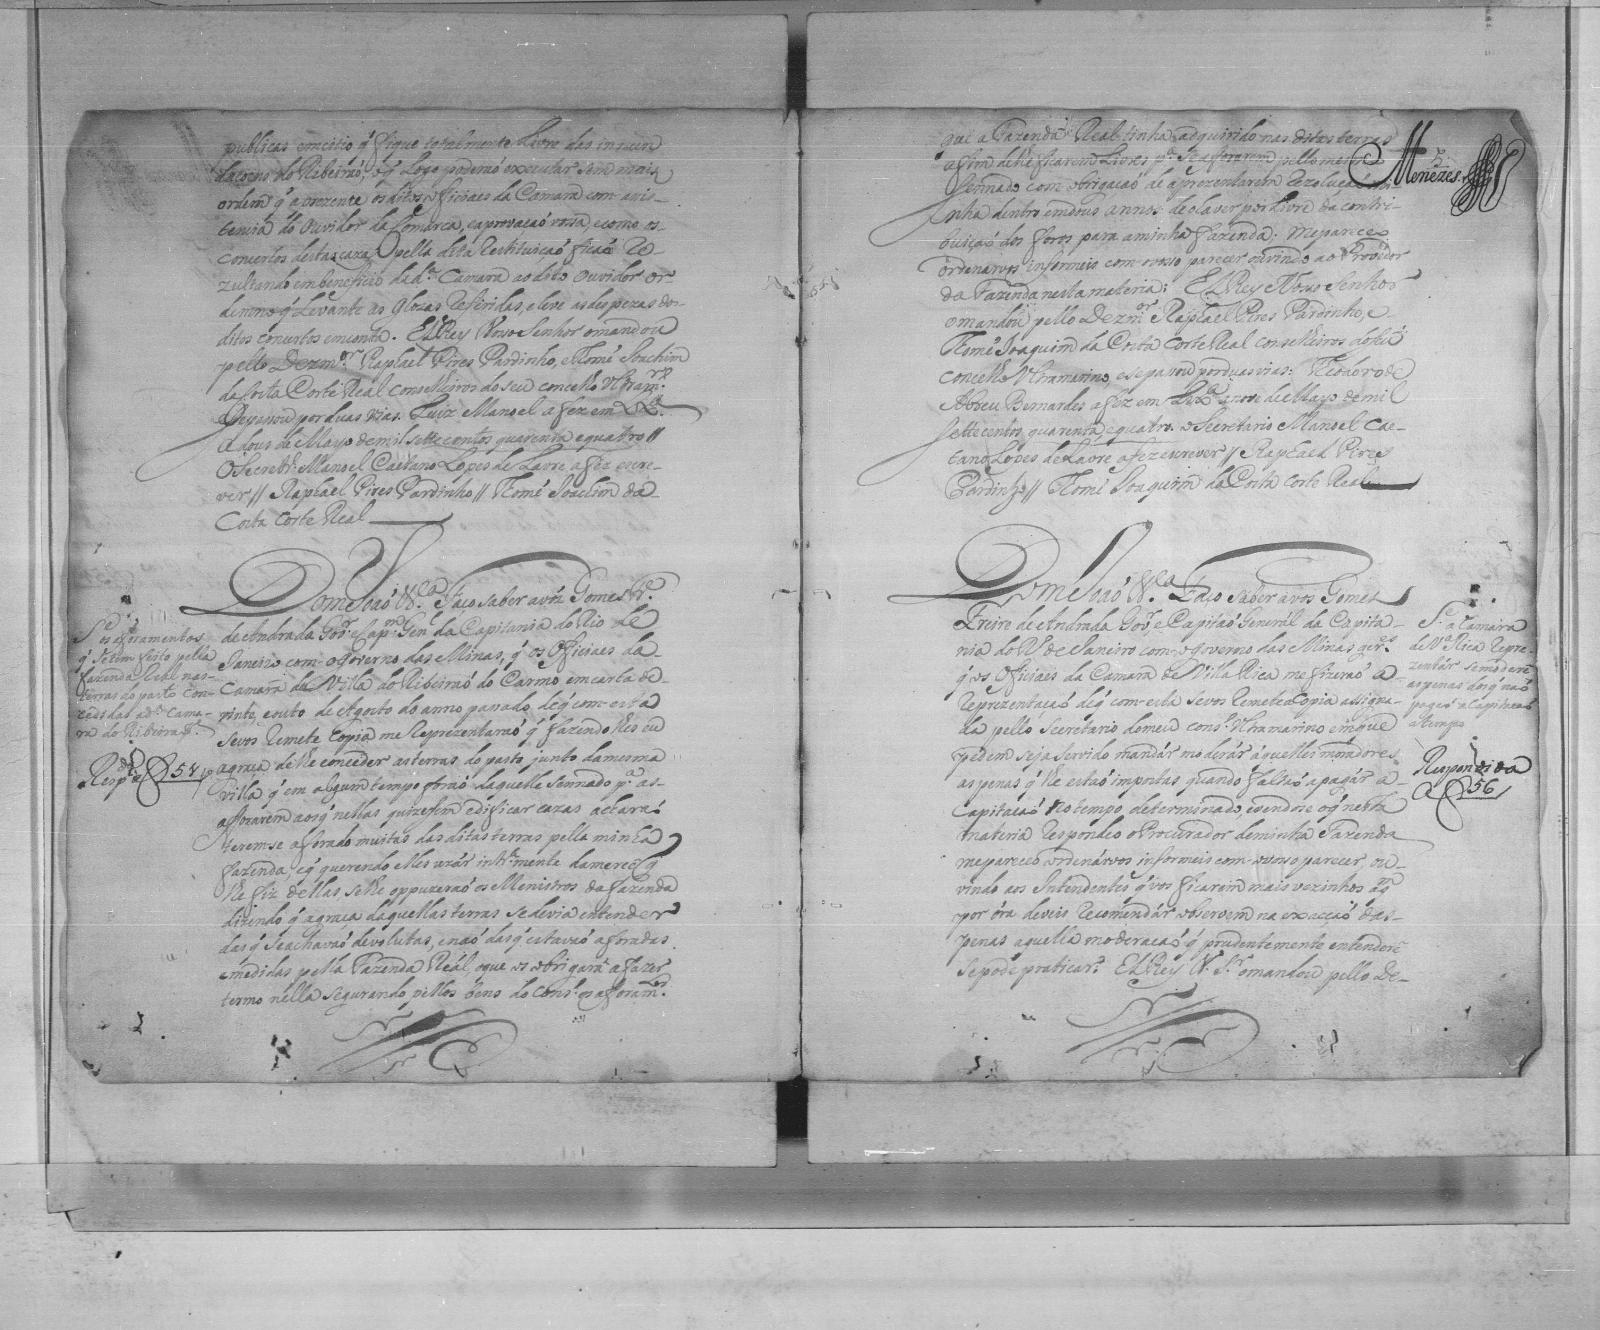 publicas em citio q̃ fique totalmente Livre das innun
dacoens do Ribeiraõ, oq̃ Logo podereis executar sem mais
ordem q̃ a prezente os ditos officiaes da Camara com asis-
tencia do Ouvidor da Comarca, e aprovaçaõ vossa, e como os
concertos destas cazas pella dita Restituiçaõ ficaõ Re-
zultando em beneficio da d.ª Camara ao dito Ouvidor or-
deno q̃ Levante as Glozas Referidas, e leve as despezas dos
ditos concertos em conta. ElRey Nosso Senhor o mandou
pello Dezm.or Raphael Pires Pardinho, e Thomé Joachim
da Costa Corte Real Conselheiros do seu concelho Ultram.º
e se passou por duas vias. Luiz Manoel a fez em Lx.ª
a dous de Mayo de mil sette centos quarenta e quatro //
O Secretr.º Manoel Caetano Lopes de Lavre a fez escre-
ver // Raphael Pires Pardinho // Thomé Joachim da
Costa Corte Real
Dom Joaõ &.ca Faço saber a vós Gomes Fr.e
de Andrada Gov.or e Cap.m Gen.l da Capitania do Rio de
Janeiro com o Governo das Minas, q̃ os Officiaes da
Camara da Villa do Ribeiraõ do Carmo em carta de
vinte, e outo de Agosto do anno passado, de q̃ com esta
se vos Remete Copia me Reprezentaraõ q̃ fazendo lhes eu
a graça de lhe conceder as terras do pasto junto da mesma
villa q̃ em algum tempo foraõ daquelle Sennado p.ª as
afforarem aos q̃ nellas quizesem edificar cazas achara
terem se aforado muitas das ditas terras pella minha
fazenda, e q̃ querendo elles uzár intr.ª mente da merce q̃
lhe fiz dellas, se lhe oppuzeraõ os Ministros da fazenda
dizendo q̃ a graça daquellas terras se devia entender
das q̃ se achavaõ devolutas, e naõ das q̃ estavaõ aforadas
e medidas pella Fazenda Reál, o que os obrigará a fazer
termo nella segurando pellos bens do Cons.º os aforam.tos
S.e os aforamentos
q̃ se tem feito pella
fazenda Real nas
terras do pasto con-
cedidas a d.ª Cama-
ra do Ribeiraõ
Resp.da a f 54
que a Fazenda Real tinha adquirido nas ditas terras
a fim de lhe ficarem Livres p.ª se aforarem pello mesmo
Sennado com obrigaçaõ de aprezentarem Rezoluçaõ mi-
nha dentro em dous annos de o haver por Livre da contri-
buiçaõ dos foros para a minha Fazenda: Me pareceo
ordenarvos informeis com vosso parecer ouvindo ao Provedor
da Fazenda nesta materia: ElRey Nosso Senhor
o mandou pello Dezm.or Raphael Pires Pardinho, e
Thomé Joaquim da Costa Corte Real conselheiros do seu
concelho Ultramarino, e se passou por duas vias: Theodoro de
Abreu Bernardes a fez em Lx.ª a nove de Mayo de mil
sette centos quarenta e quatro. o Secretario Manoel Cae-
tano Lopes de Lavre a fez escrever // Raphael Pires
Pardinho // Thomé Joaquim da Costa Corte Real
Menezes
Dom Joaõ &.ca Faço Saber a vos Gomes
Freire de Andrada Gov.or e Capitaõ General da Capita-
nia do R.º de Janeiro com o Governo das Minas ger.es
q̃ os Officiaes da Camara de Villa Rica me fizeraõ a
Reprezentaçaõ de q̃ com esta se vos Remete Copia assigna-
da pello Secretario do meu cons.º Ultramarino em que
pedem seja servido mandár moderár áquelles moradores
as penas q̃ lhe estaõ impostas quando faltaõ a pagár a
Capitaçaõ no tempo determinado, e vendose o q̃ nesta
materia Respondeo o Procurador de minha Fazenda
me pareceo ordenárvos informeis com o vosso parecer, ou-
vindo aos Intendentes q̃ vos ficarem mais vezinhos aos q̃
por óra deveis Recomendár observem na exacçaõ das
penas aquella moderacaõ q̃ prudentemente entenderẽ
se pode praticar. ElRey N. S.r o mandou pello De-
S.e a Camara
de V.ª Rica Repre-
zentár se moderẽ
as penas dos q̃ naõ
pagaõ a Capitacaõ
a tempo
Respondida
a f 56